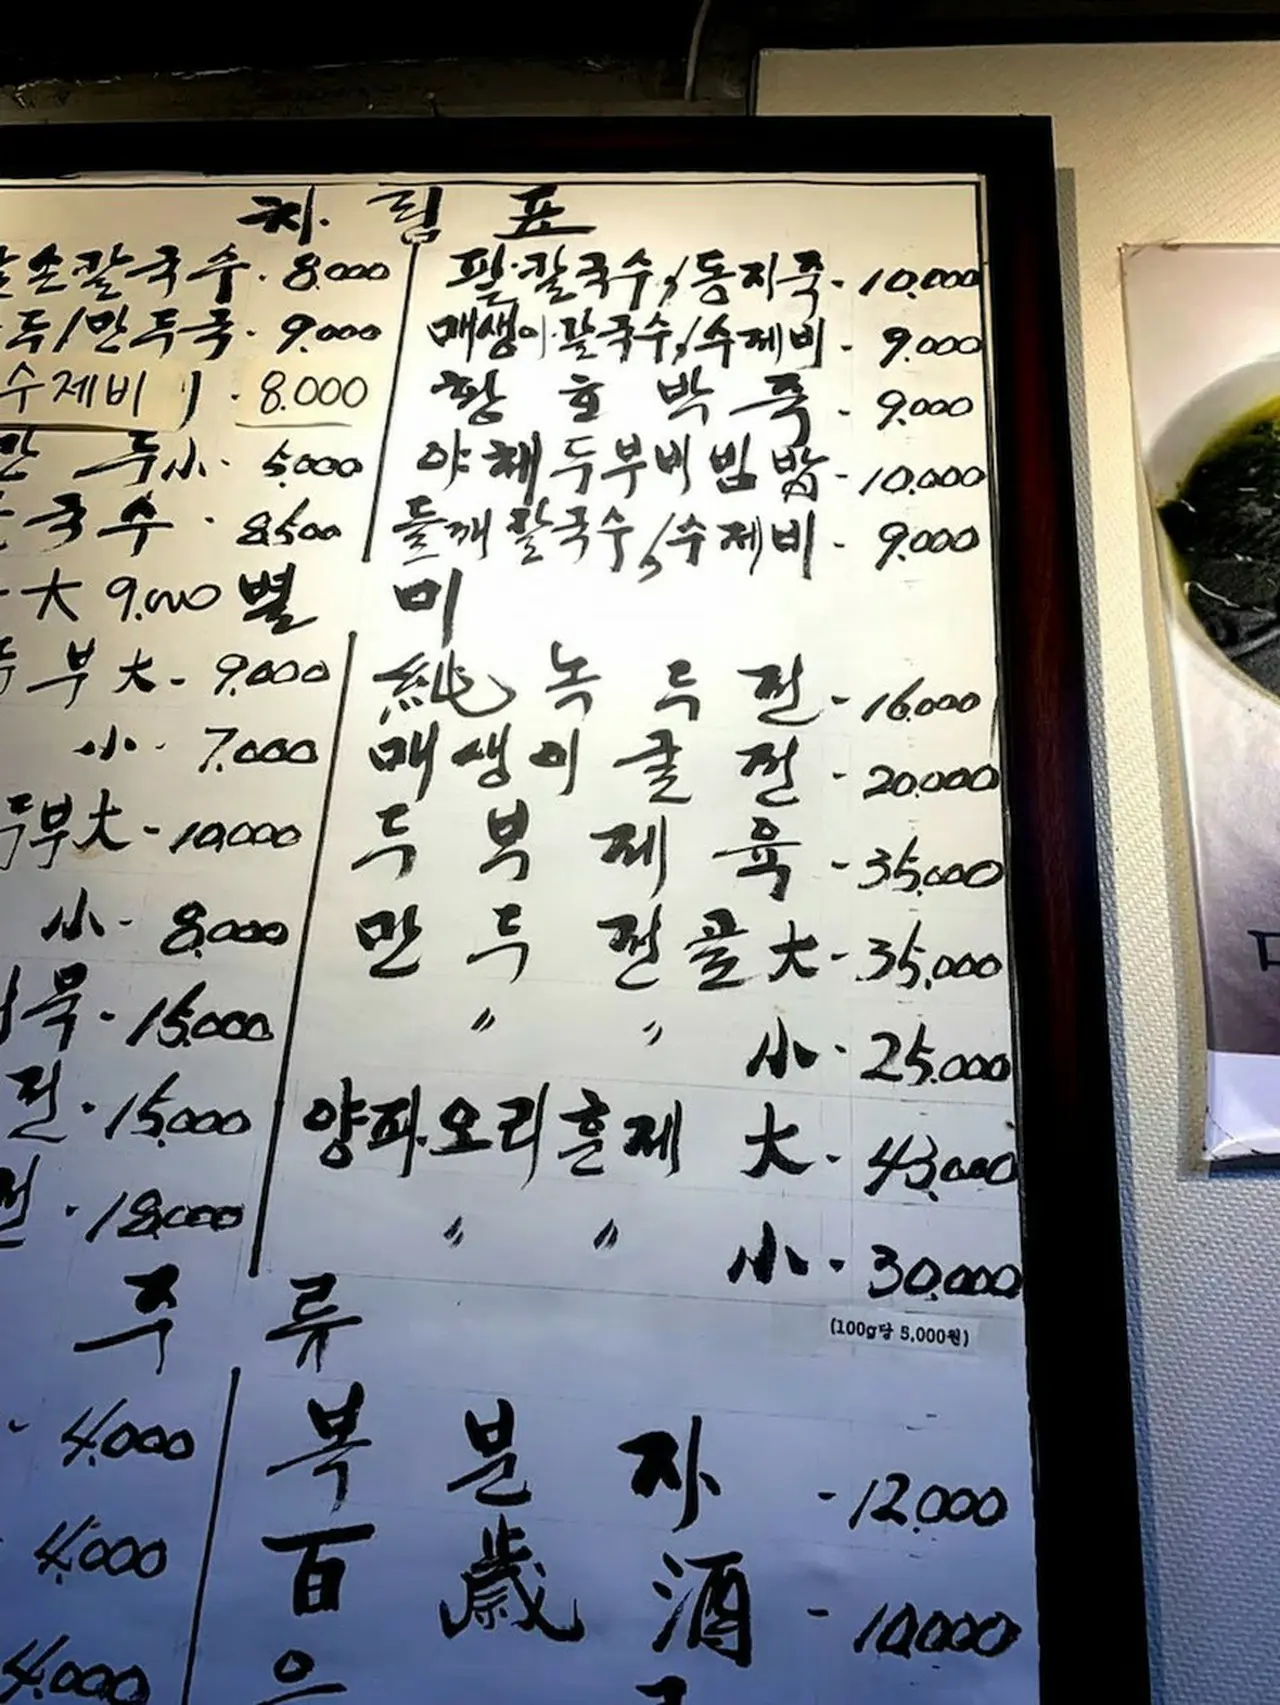 차림표
손칼국수 · 8.000
두/만두국 · 9.000
수제비 ) · 8.000
만두小 · 5.000
국수 · 8.500
大 9.000
부大 - 9.000
小 · 7.000
두부大 - 10,000
小 - 8.000
묵 · 15.000
전 · 15.000
전 · 18.000
팥·칼국수,/동지죽 - 10.000
매생이·칼국수,/수제비 - 9.000
황호박죽 - 9.000
야채두부비빔밥 - 10.000
들깨칼국수,/수제비 - 9.000
별미
純녹두전 - 16.000
매생이굴전 - 20.000
두부제육 - 35.000
만두전골大 - 35.000
〃 〃 小 · 25.000
양파오리훈제 大 - 43.000
〃 〃 小 · 30.000
(100g당 5,000원)
주류
4.000
4.000
4.000
복분자 - 12.000
百歲酒 - 10.000